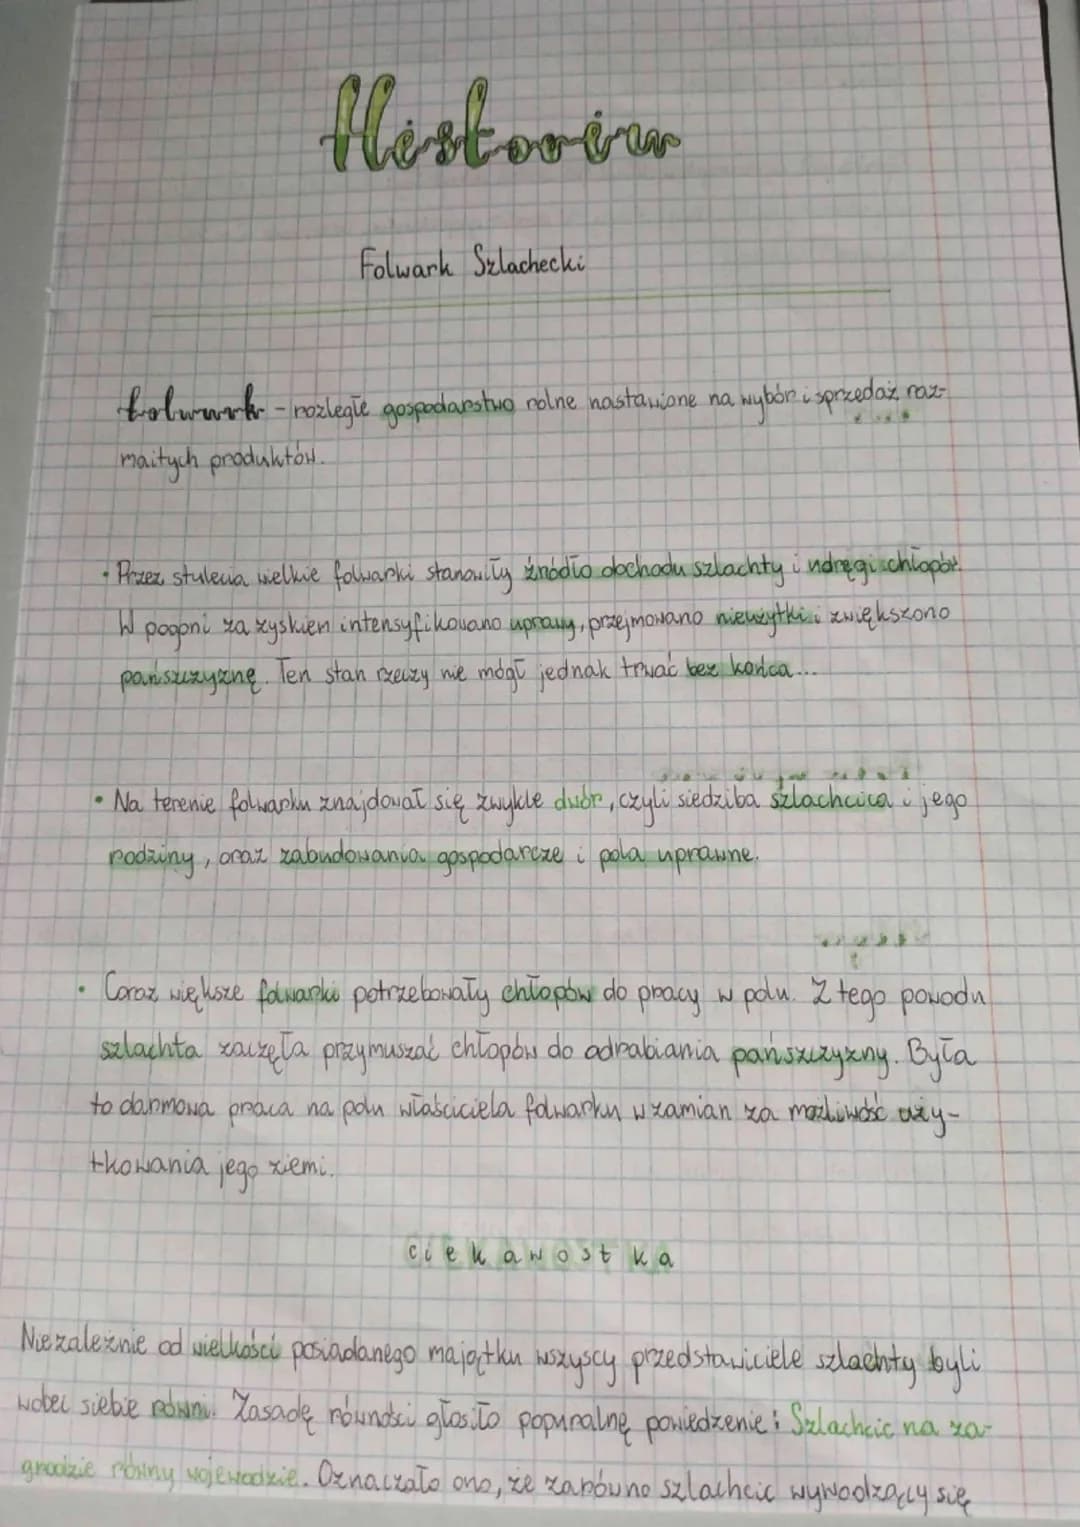 Historia
Folwark Szlachecki
folwark - rozległe gospodarstwo rolne nastawione na wybór i sprzedaż roz-
maitych produktów.
• Przez stulecia wielkie folwarki stanowiły źródło dochodu szlachty i udręgi chłopów.
W pogoni za zyskiem intensyfikowano uprawy, przejmowano nieużytki i zwiększono
pańszczyznę. Ten stan rzeczy nie mógł jednak trwać bez końca...
• Na terenie folwarku znajdował się zwykle dwór, czyli siedziba szlachcica i jego
rodziny, oraz zabudowania gospodarcze i pola uprawne.
• Coraz większe folwarki potrzebowały chłopów do pracy w polu. Z tego powodu
szlachta zaczęła przymuszać chłopów do odrabiania pańszczyzny. Była
to darmowa praca na polu właściciela folwarku w zamian za możliwość uży-
tkowania jego ziemi.
ciekawostka
Niezależnie od wielkości posiadanego majątku wszyscy przedstawiciele szlachty byli
wobec siebie równi. Zasadę równości głosiło popuralnę powiedzenie: Szlachcic na za-
grodzie równy wojewodzie. Oznaczało ono, że zarówno szlachcic wywodzący się